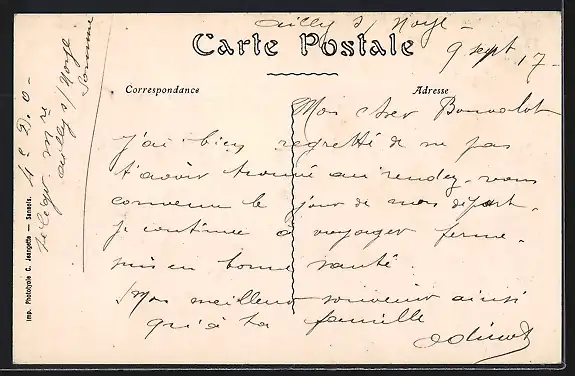 ailly s/ Noye
Carte Postale
9 sept 17-
Correspondance
Adresse
Mon cher Bonvalot
J'ai bien regretté de ne pas
t'avoir trouvé au rendez-vous
convenu le jour de mon départ.
je continue à voyager ferme.
suis en bonne santé.
Mon meilleur souvenir ainsi
qu'à ta famille
ailly s/ Noye
Somme
Imp. Phototypie C. Jeangette — Sanscis.